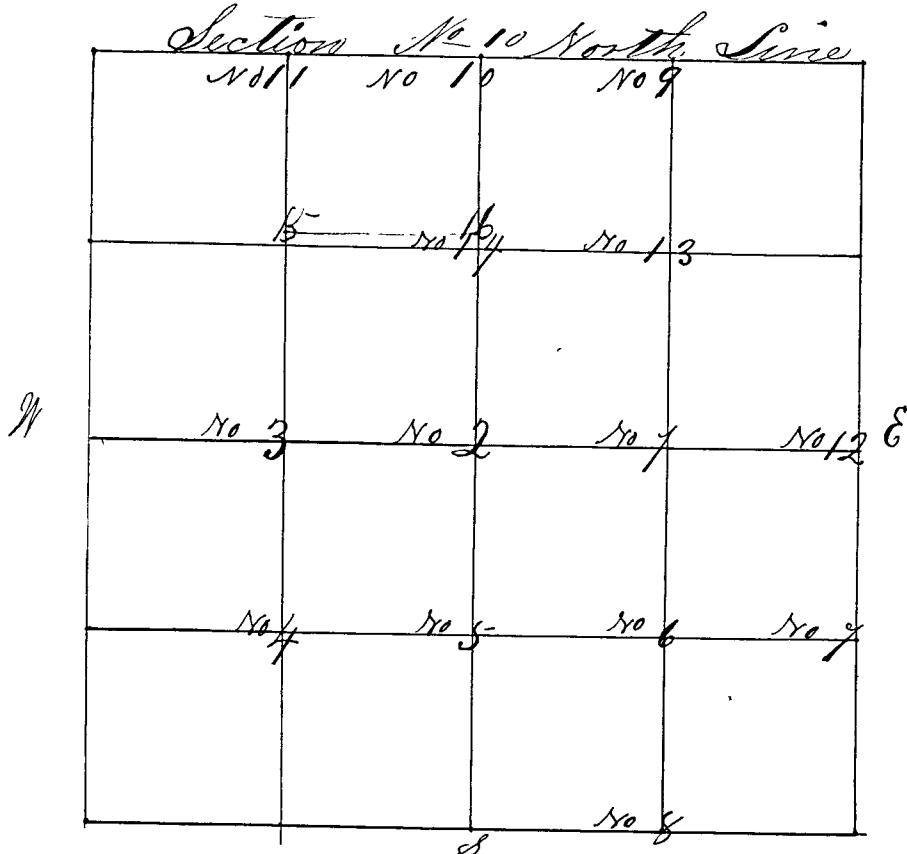 Section No 10 North Line
No 11 No 10 No 9
15 16
No 14 No 13
W No 3 No 2 No 1 No 12 E
No 4 No 5 No 6 No 7
No 8
S